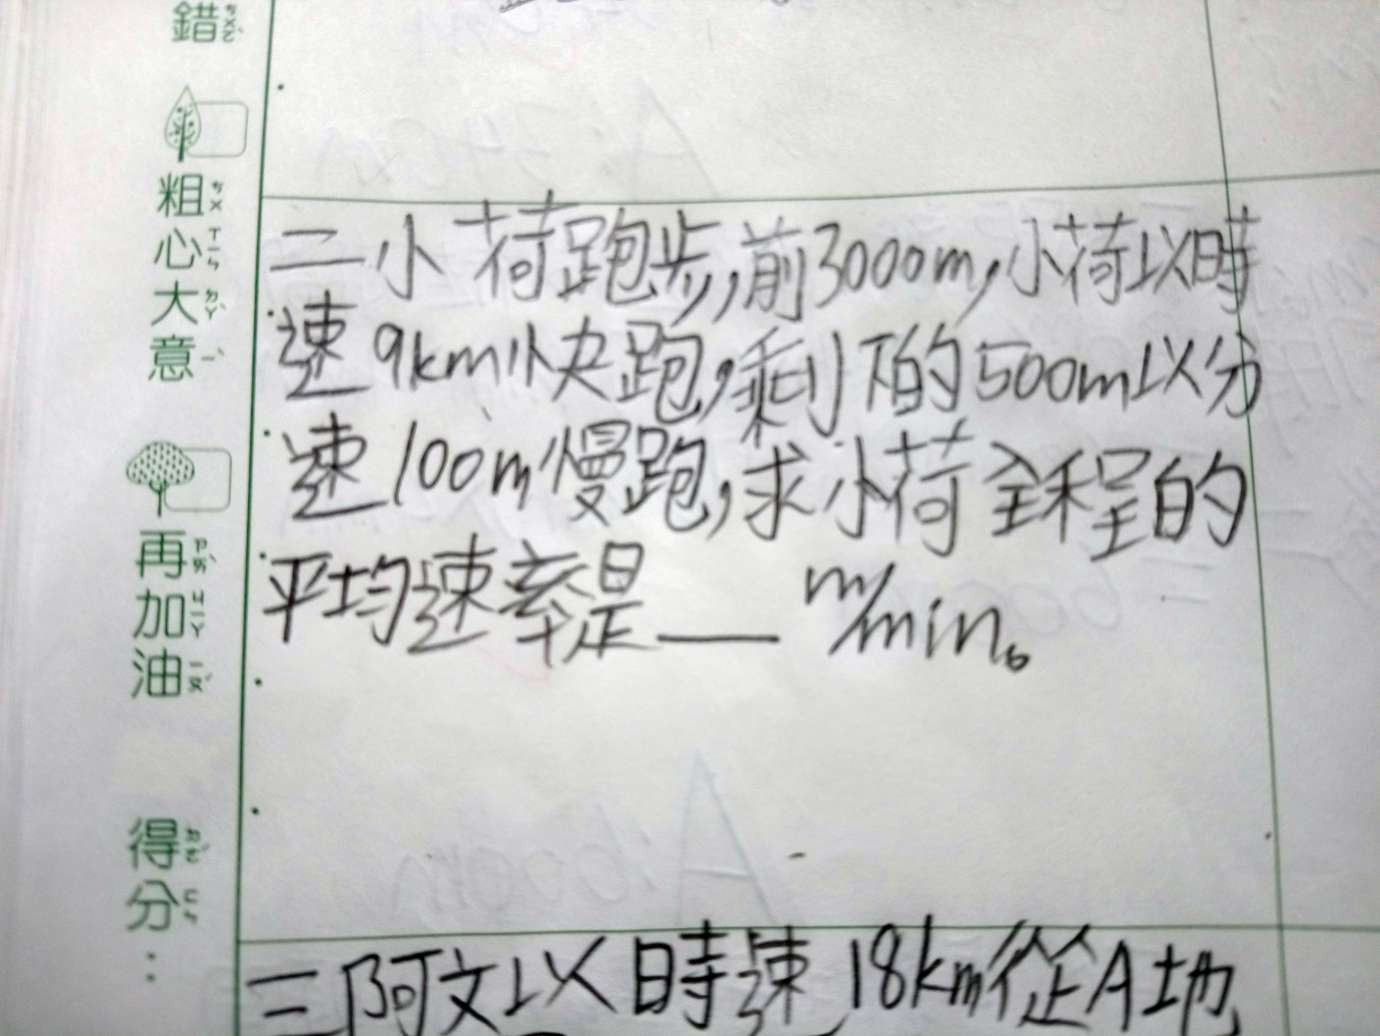 錯ㄘㄨㄛˋ
粗ㄘㄨ
心ㄒㄧㄣ
大ㄉㄚˋ
意ㄧˋ
再ㄗㄞˋ
加ㄐㄧㄚ
油ㄧㄡˊ
得ㄉㄜˊ
分ㄈㄣ
：
二小荷跑步,前3000m,小荷以時
速9km快跑,剩下的500m以分
速100m慢跑,求小荷全程的
平均速率是___m/min。
三阿文以時速18km從A地